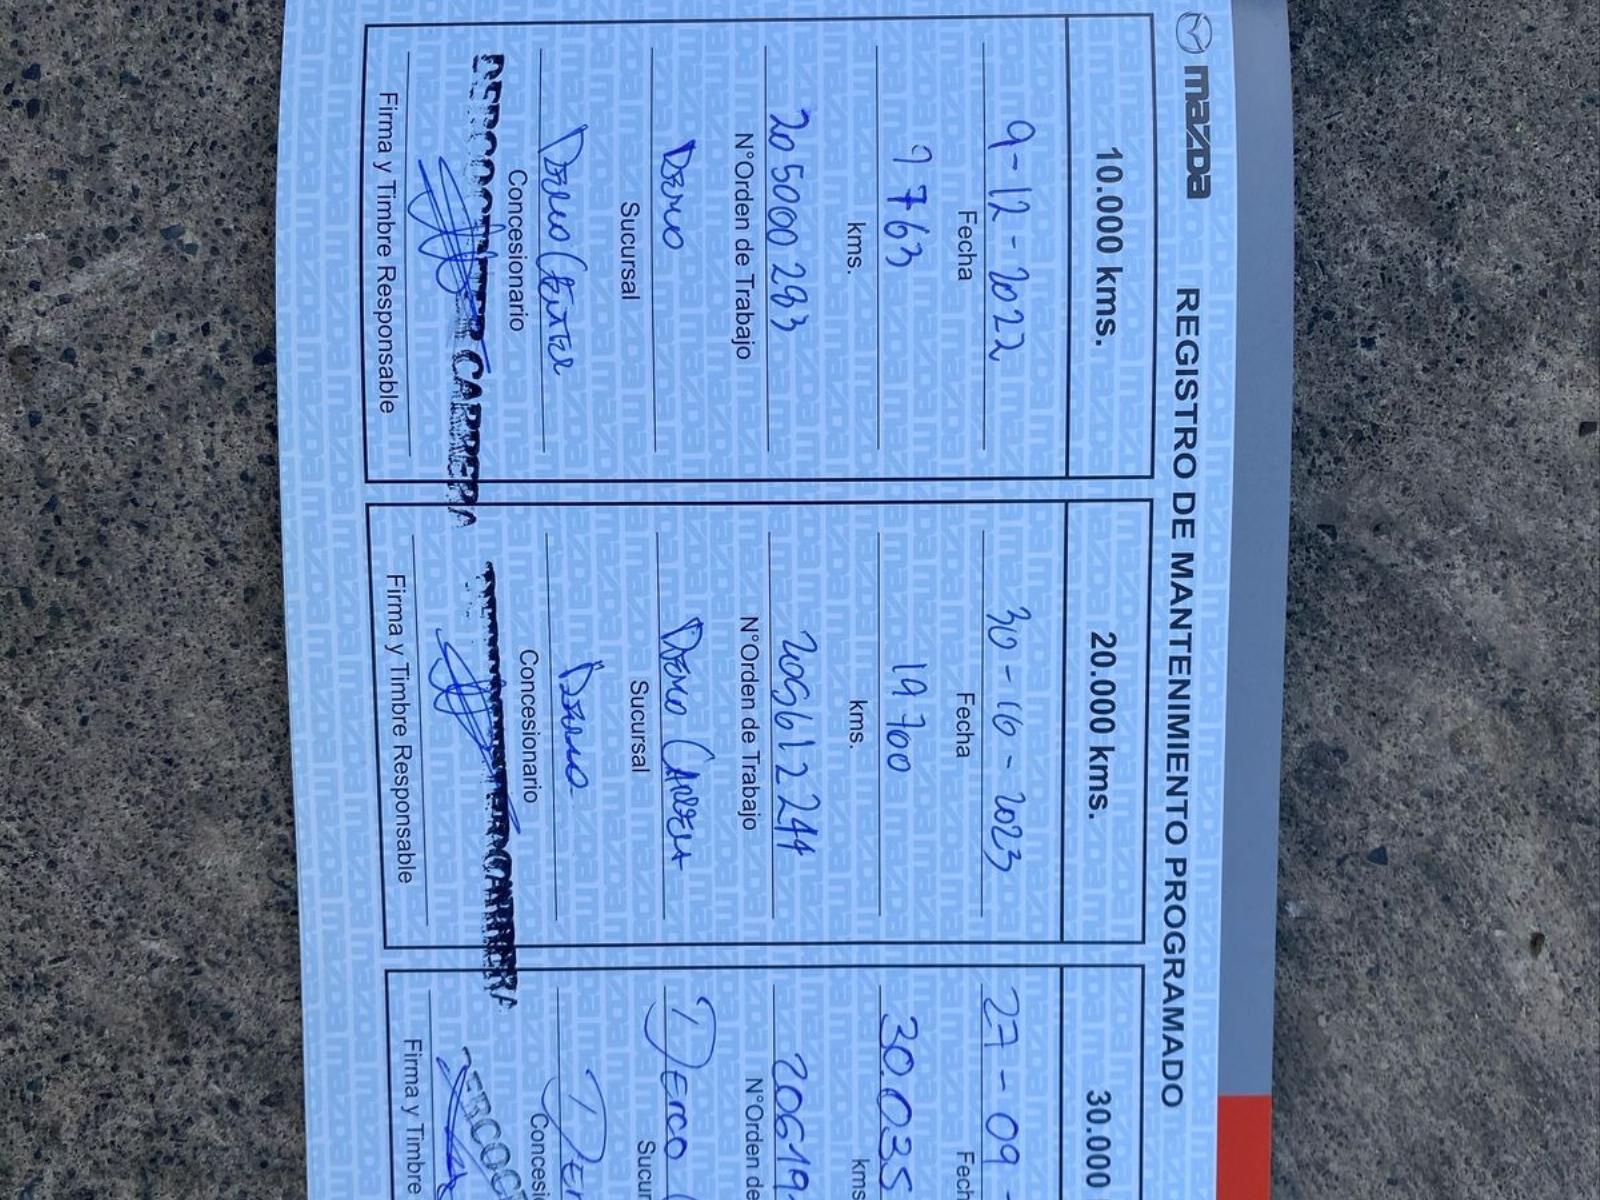 mazda
REGISTRO DE MANTENIMIENTO PROGRAMADO
10.000 kms.
9-12-2022
Fecha
9763
kms.
205000283
N°Orden de Trabajo
Derco
Sucursal
Derco Center
Concesionario
DERCOCENTER CARRERA
Firma y Timbre Responsable
20.000 kms.
30-10-2023
Fecha
19700
kms.
205612244
N°Orden de Trabajo
Derco Carrera
Sucursal
Derco
Concesionario
CARRERA
Firma y Timbre Responsable
30.000
27-09-
Fech
30.035
kms
20619
N°Orden de
DERCO
Sucur
DER
Concesi
ERCOCE
Firma y Timbre